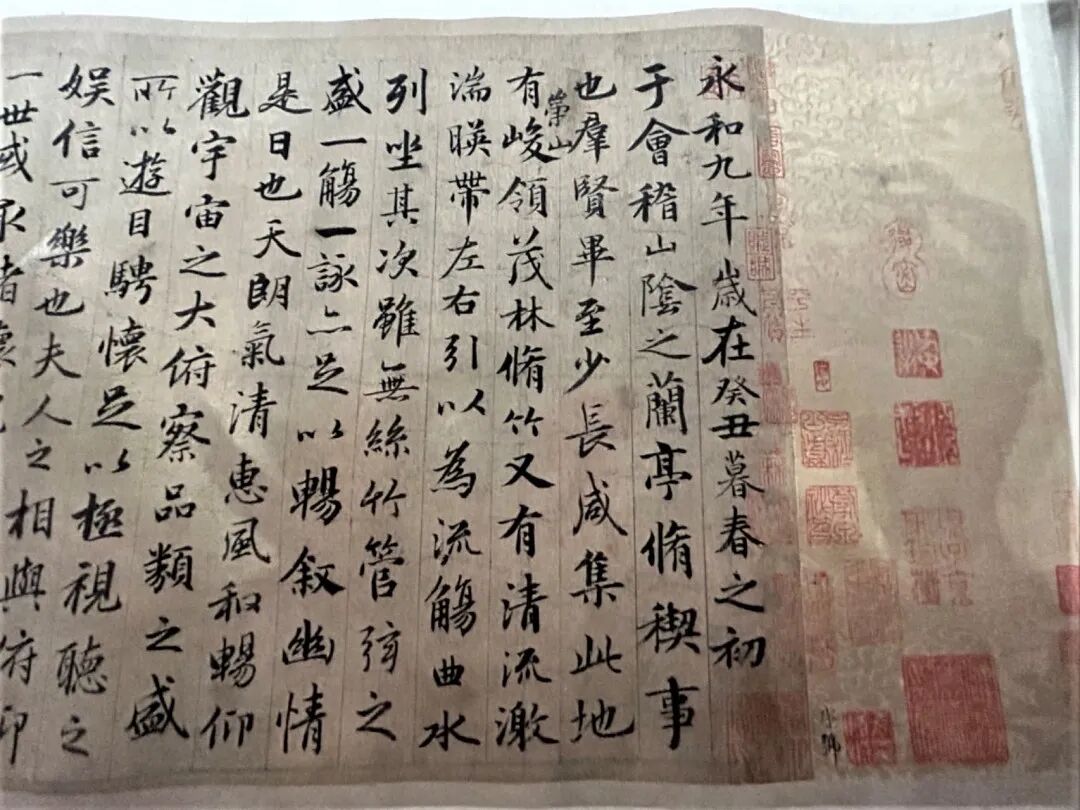 永和九年歲在癸丑暮春之初
于會稽山陰之蘭亭脩稧事
也羣賢畢至少長咸集此地
有崇山峻領茂林脩竹又有清流激
湍暎帶左右引以為流觴曲水
列坐其次雖無絲竹管弦之
盛一觴一詠亦足以暢叙幽情
是日也天朗氣清惠風和暢仰
觀宇宙之大俯察品類之盛
所以遊目騁懷足以極視聽之
娛信可樂也夫人之相與俯仰
一世或取諸懷